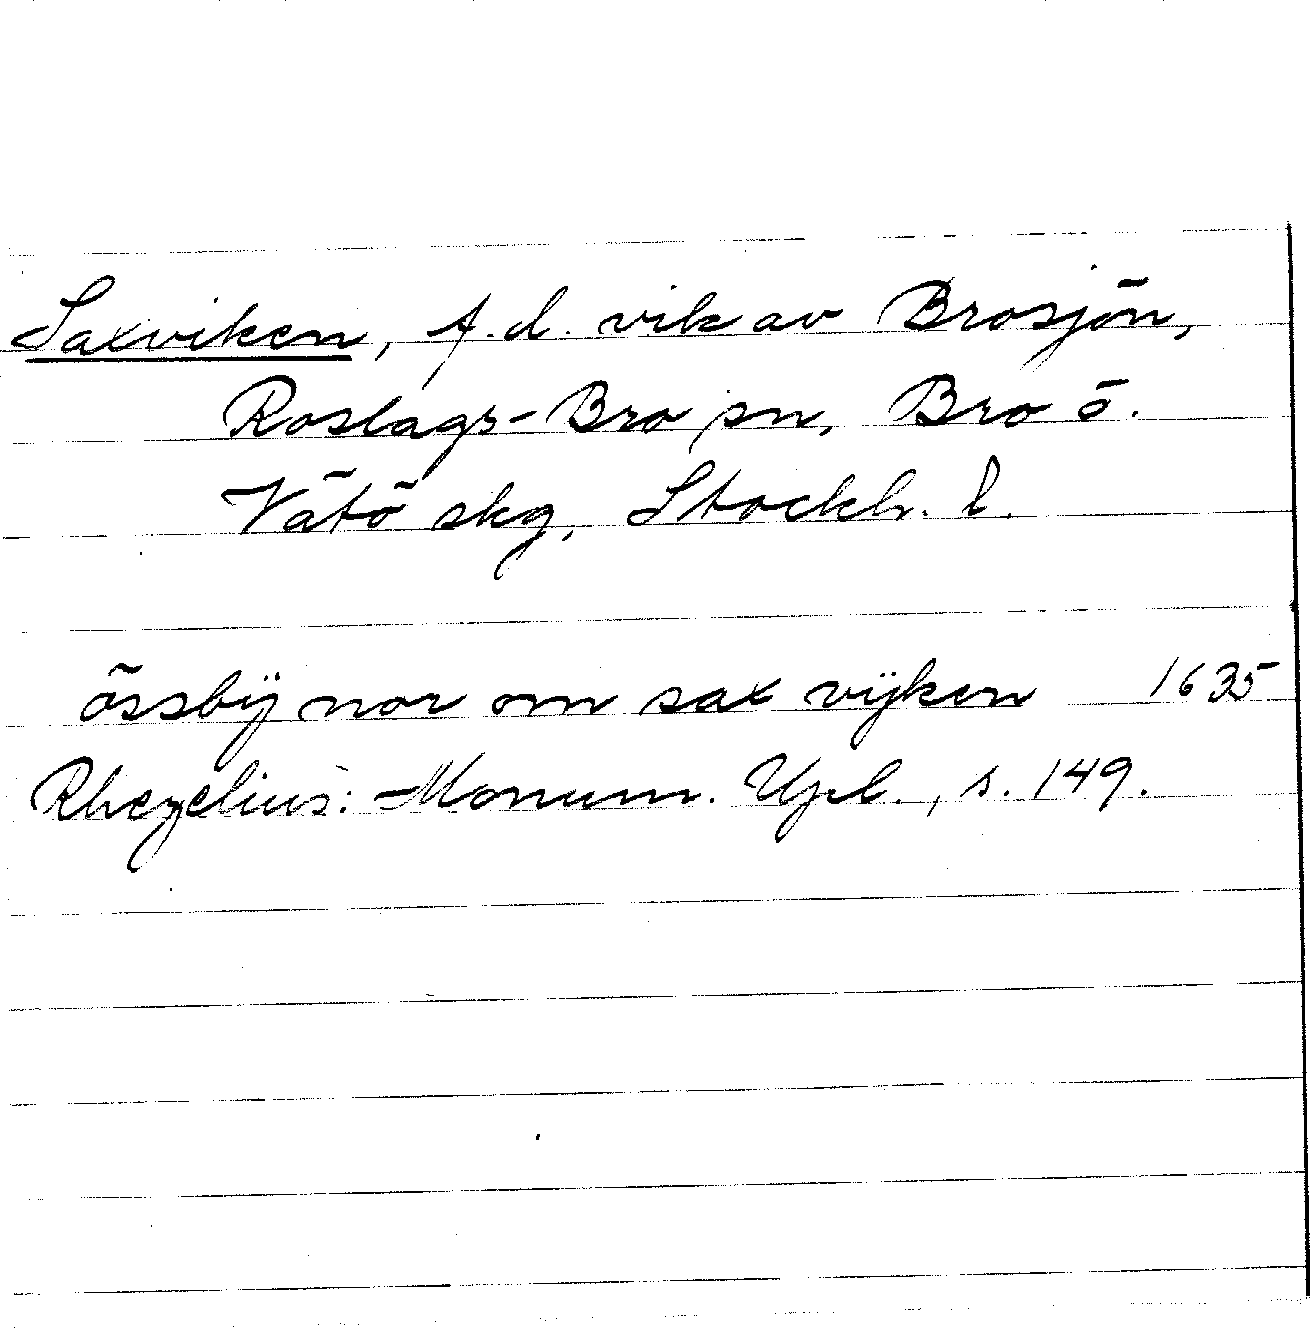 Saxviken, f.d. vik av Brosjön,
Roslags-Bro sn, Bro o.
Vätö skg, Stockh. l.
össbÿ nor om sax vÿken 1635
Rhezelius: Monum. Upl., s. 149.